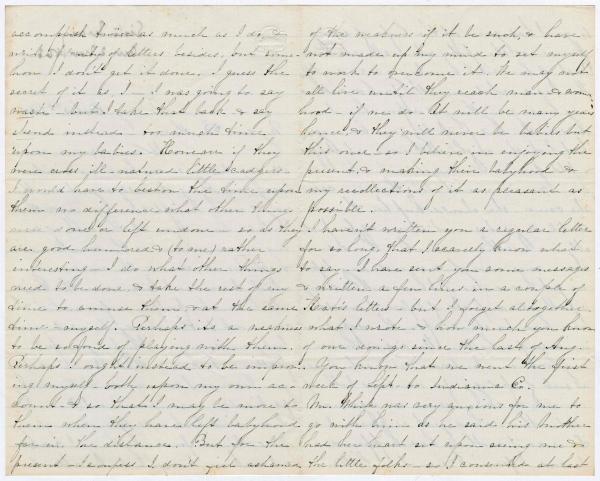 accomplish twice as much as I do, &
write plenty of letters besides, but some-
how I don't get it done. I guess the
secret of it is, I - I was going to say
waste - but I take that back & say
spend instead - too much time
upon my babies. However if they
were cross ill-natured little scamps
I would have to bestow the time upon
them no difference what other things
were done or left undone - so as they
are good humored & (to me) rather
interesting - I do what other things
need to be done & take the rest of my
time to amuse them & at the same
time - myself. Perhaps its a weakness
to be so fond of playing with them.
Perhaps I ought instead to be improv-
ing myself both upon my own ac-
count & so that I may be more to
them when they have left babyhood
far in the distance. But for the
present - I confess I don't feel ashamed
of the weakness if it be such, & have
not made up my mind to set myself
to work to overcome it. We may not
all live until they reach man & woman
hood - if we do - it will be many years
hence, & they will never be babies but
this once - so I believe in enjoying the
present & making their babyhood &
my recollections of it as pleasant as
possible.
I haven't written you a regular letter
for so long, that I scarcely know what
to say. I have sent you some messages
& written a few lines in a couple of
Kate's letters - but I forget altogether
what I wrote & how much you know
of our doings since the last of Aug.
You know that we went the first
week of Sept to Indiana Co.
Mr. White was very anxious for me to
go with him as he said his mother
had her heart set upon seeing me &
the little folks - so I consented at last